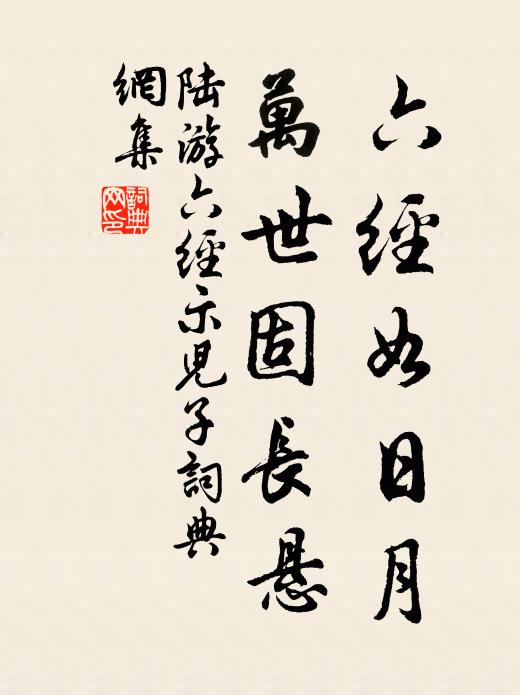 六經如日月
萬世固長懸
陆游六經示児子詞典
網集
詞典网印